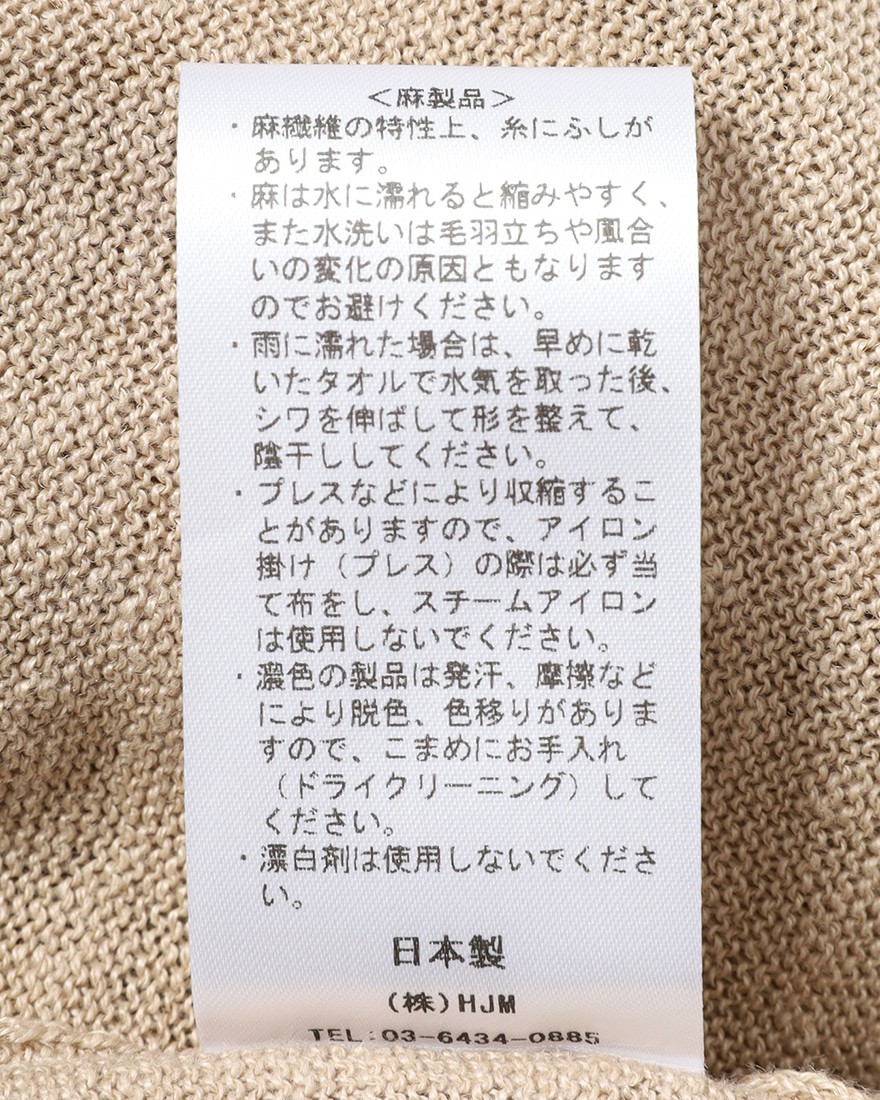 ＜麻製品＞
・麻繊維の特性上、糸にふしが
あります。
・麻は水に濡れると縮みやすく、
また水洗いは毛羽立ちや風合
いの変化の原因ともなります
のでお避けください。
・雨に濡れた場合は、早めに乾
いたタオルで水気を取った後、
シワを伸ばして形を整えて、
陰干ししてください。
・プレスなどにより収縮するこ
とがありますので、アイロン
掛け（プレス）の際は必ず当
て布をし、スチームアイロン
は使用しないでください。
・濃色の製品は発汗、摩擦など
により脱色、色移りがありま
すので、こまめにお手入れ
（ドライクリーニング）して
ください。
・漂白剤は使用しないでくださ
い。
日本製
(株)HJM
TEL:03-6434-0885